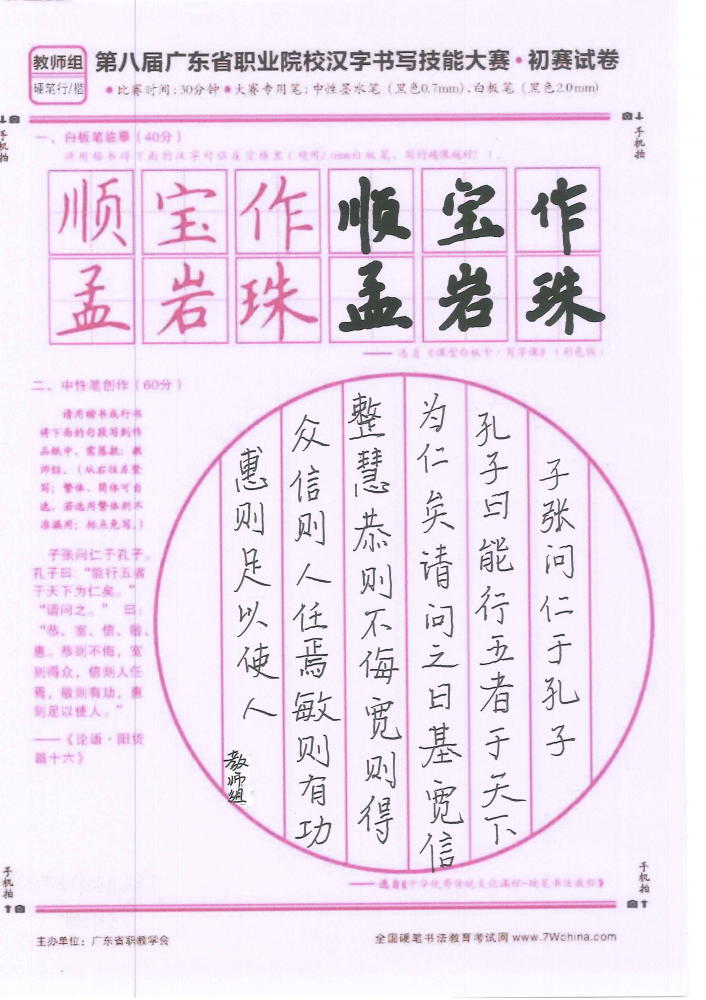 教师组
硬笔行/楷
第八届广东省职业院校汉字书写技能大赛·初赛试卷
●比赛时间：30分钟 ●大赛专用笔：中性墨水笔（黑色0.7mm）、白板笔（黑色2.0mm）
手机拍
手机拍
一、白板笔临摹（40分）
请用楷书将下面的汉字对临在空格里（使用2.0mm白板笔，写的越像越好！）。
顺宝作顺宝作
孟岩珠孟岩珠
——选自《课堂白板卡·写字课》（彩色版）
二、中性笔创作（60分）
请用楷书或行书
将下面的句段写到作
品纸中，需落款：教
师组。（从右往左竖
写；繁体、简体可自
选，若选用繁体则不
准漏用；标点免写。）
子张问仁于孔子。
孔子曰：“能行五者
于天下为仁矣。”
“请问之。” 曰：
“恭、宽、信、敏、
惠。恭则不侮，宽
则得众，信则人任
焉，敏则有功，惠
则足以使人。”
——《论语·阳货
篇十六》
子张问仁于孔子
孔子曰能行五者于天下
为仁矣请问之曰基宽信
整慧恭则不侮宽则得
众信则人任焉敏则有功
惠则足以使人
教师组
——选自《中华优秀传统文化课程-硬笔书法教程》
手机拍
手机拍
主办单位：广东省职教学会
全国硬笔书法教育考试网 www.7Wchina.com